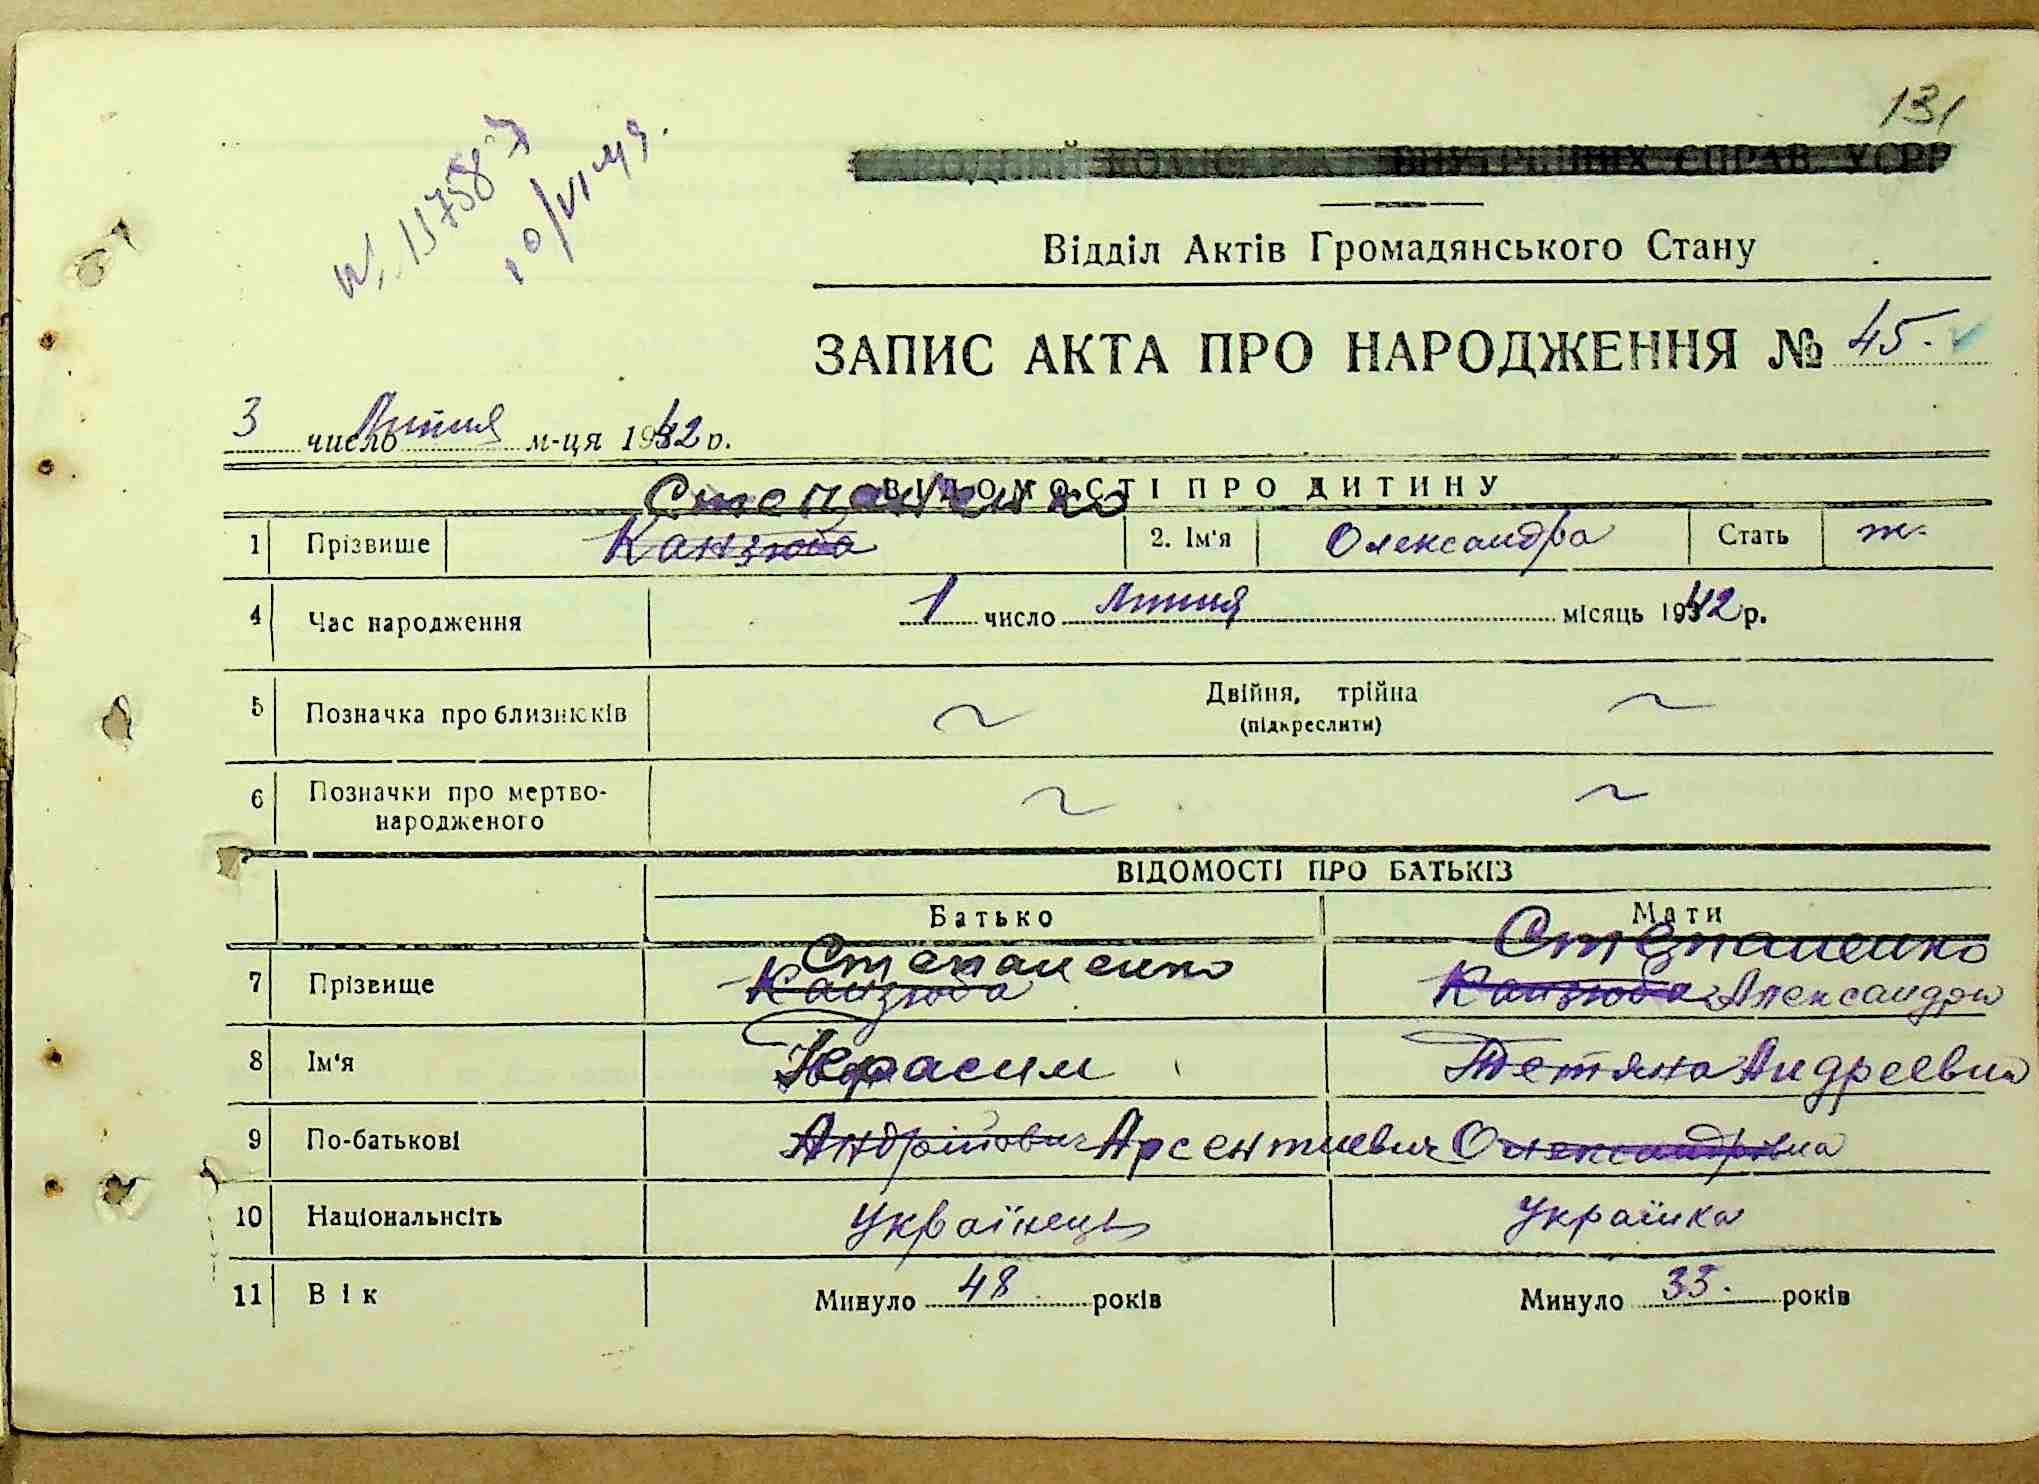 131
№ 11758
10/VI
ВНУТРІШНИХ СПРАВ УСРР
Відділ Актів Громадянського Стану
ЗАПИС АКТА ПРО НАРОДЖЕННЯ № 45.
3 число Липня м-ця 1942 р.
ВІДОМОСТІ ПРО ДИТИНУ
Степаненко
1 Прізвише Канзюба 2. Ім'я Олександра Стать ж.
4 Час народження 1 число Липня місяць 1942 р.
5 Позначка про близнюків Двійня, трійна
(підкреслити)
6 Позначки про мертво-
народженого
ВІДОМОСТІ ПРО БАТЬКІВ
Батько Мати
Степаненко Степаненко
7 Прізвище Канзюба Канзюба Александра
8 Ім'я Герасим Тетяна Андреевна
9 По-батькові Андрійович Арсентиевич Олександрівна
10 Національнсіть Українець Українка
11 Вік Минуло 48 років Минуло 33. років